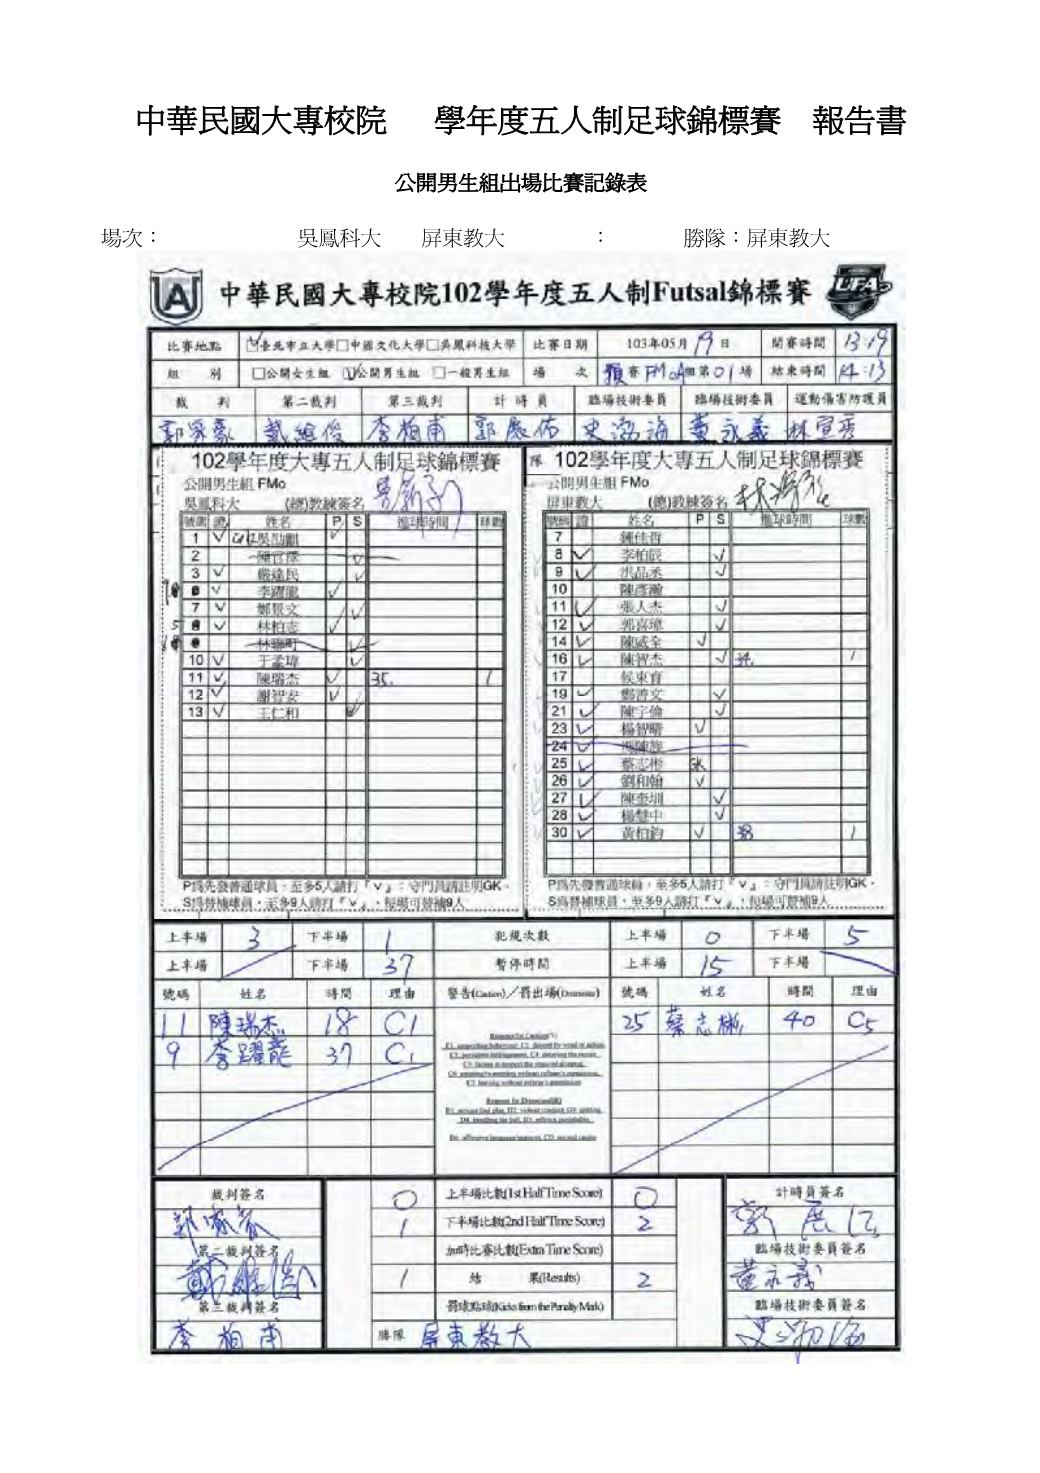 中華民國大專校院 學年度五人制足球錦標賽 報告書
公開男生組出場比賽記錄表
場次： 吳鳳科大 屏東教大 ： 勝隊：屏東教大
中華民國大專校院102學年度五人制Futsal錦標賽
比賽地點 ☑臺北市立大學□中國文化大學□吳鳳科技大學 比賽日期 103年05月19日 開賽時間 13:19
組 別 □公開女生組 ☑公開男生組 □一般男生組 場 次 預賽FMoA組第01場 結束時間 14:13
裁 判 第二裁判 第三裁判 計時員 臨場技術委員 臨場技術委員 運動傷害防護員
李柏甫 董永義 林宣秀
102學年度大專五人制足球錦標賽
公開男生組 FMo
吳鳳科大 (總)教練簽名
號碼 證 姓名 P S 進球時間 球數
1 ✓ ✓
2 ✓
3 ✓ 嚴達民 ✓
✓ 李躍龍 ✓
7 ✓ 鄭景文 ✓
5 ✓ 林柏志 ✓
10 ✓ 于孟瑋 ✓
11 ✓ 陳瑞杰 ✓ 35. 1
12 ✓ 謝智安 ✓
13 ✓ 王仁和
P為先發普通球員，至多5人請打『v』；守門員請註明GK。
S為替補球員，至多9人請打『v』，每場可替補9人
隊 102學年度大專五人制足球錦標賽
公開男生組 FMo
屏東教大 (總)教練簽名
號碼 證 姓名 P S 進球時間 球數
7 鍾佳哲
8 ✓ 李柏辰 ✓
9 ✓ 洪品丞 ✓
10 陳彥瀚
11 ✓ 張人杰 ✓
12 ✓ 郭喜瑋 ✓
14 ✓ 陳威全 ✓
16 ✓ 陳智杰 ✓ 34. 1
17 侯東育
19 ✓ 鄭善文 ✓
21 ✓ 陳宇倫 ✓
23 ✓ 楊智晴 ✓
24 ✓
25 ✓ 蔡志彬 GK
26 ✓ 劉和翰 ✓
27 ✓ 陳奎圳 ✓
28 ✓ 楊慧中 ✓
30 ✓ 黃柏鈞 ✓ 38 1
P為先發普通球員，至多5人請打『v』；守門員請註明GK。
S為替補球員，至多9人請打『v』，每場可替補9人
上半場 3 下半場 1 犯規次數 上半場 0 下半場 5
上半場 下半場 37 暫停時間 上半場 15 下半場
號碼 姓名 時間 理由 警告(Caution)／罰出場(Dismissals) 號碼 姓名 時間 理由
11 陳瑞杰 18 C1 25 蔡志彬 40 C5
9 李躍龍 37 C1
裁判簽名 0 上半場比數(1st Half Time Score) 0 計時員簽名
1 下半場比數(2nd Half Time Score) 2
第二裁判簽名 加時比賽比數(Extra Time Score) 臨場技術委員簽名
1 結 果(Results) 2 董永義
第三裁判簽名 罰球點球(Kicks from the Penalty Mark) 臨場技術委員簽名
李柏甫 勝隊 屏東教大